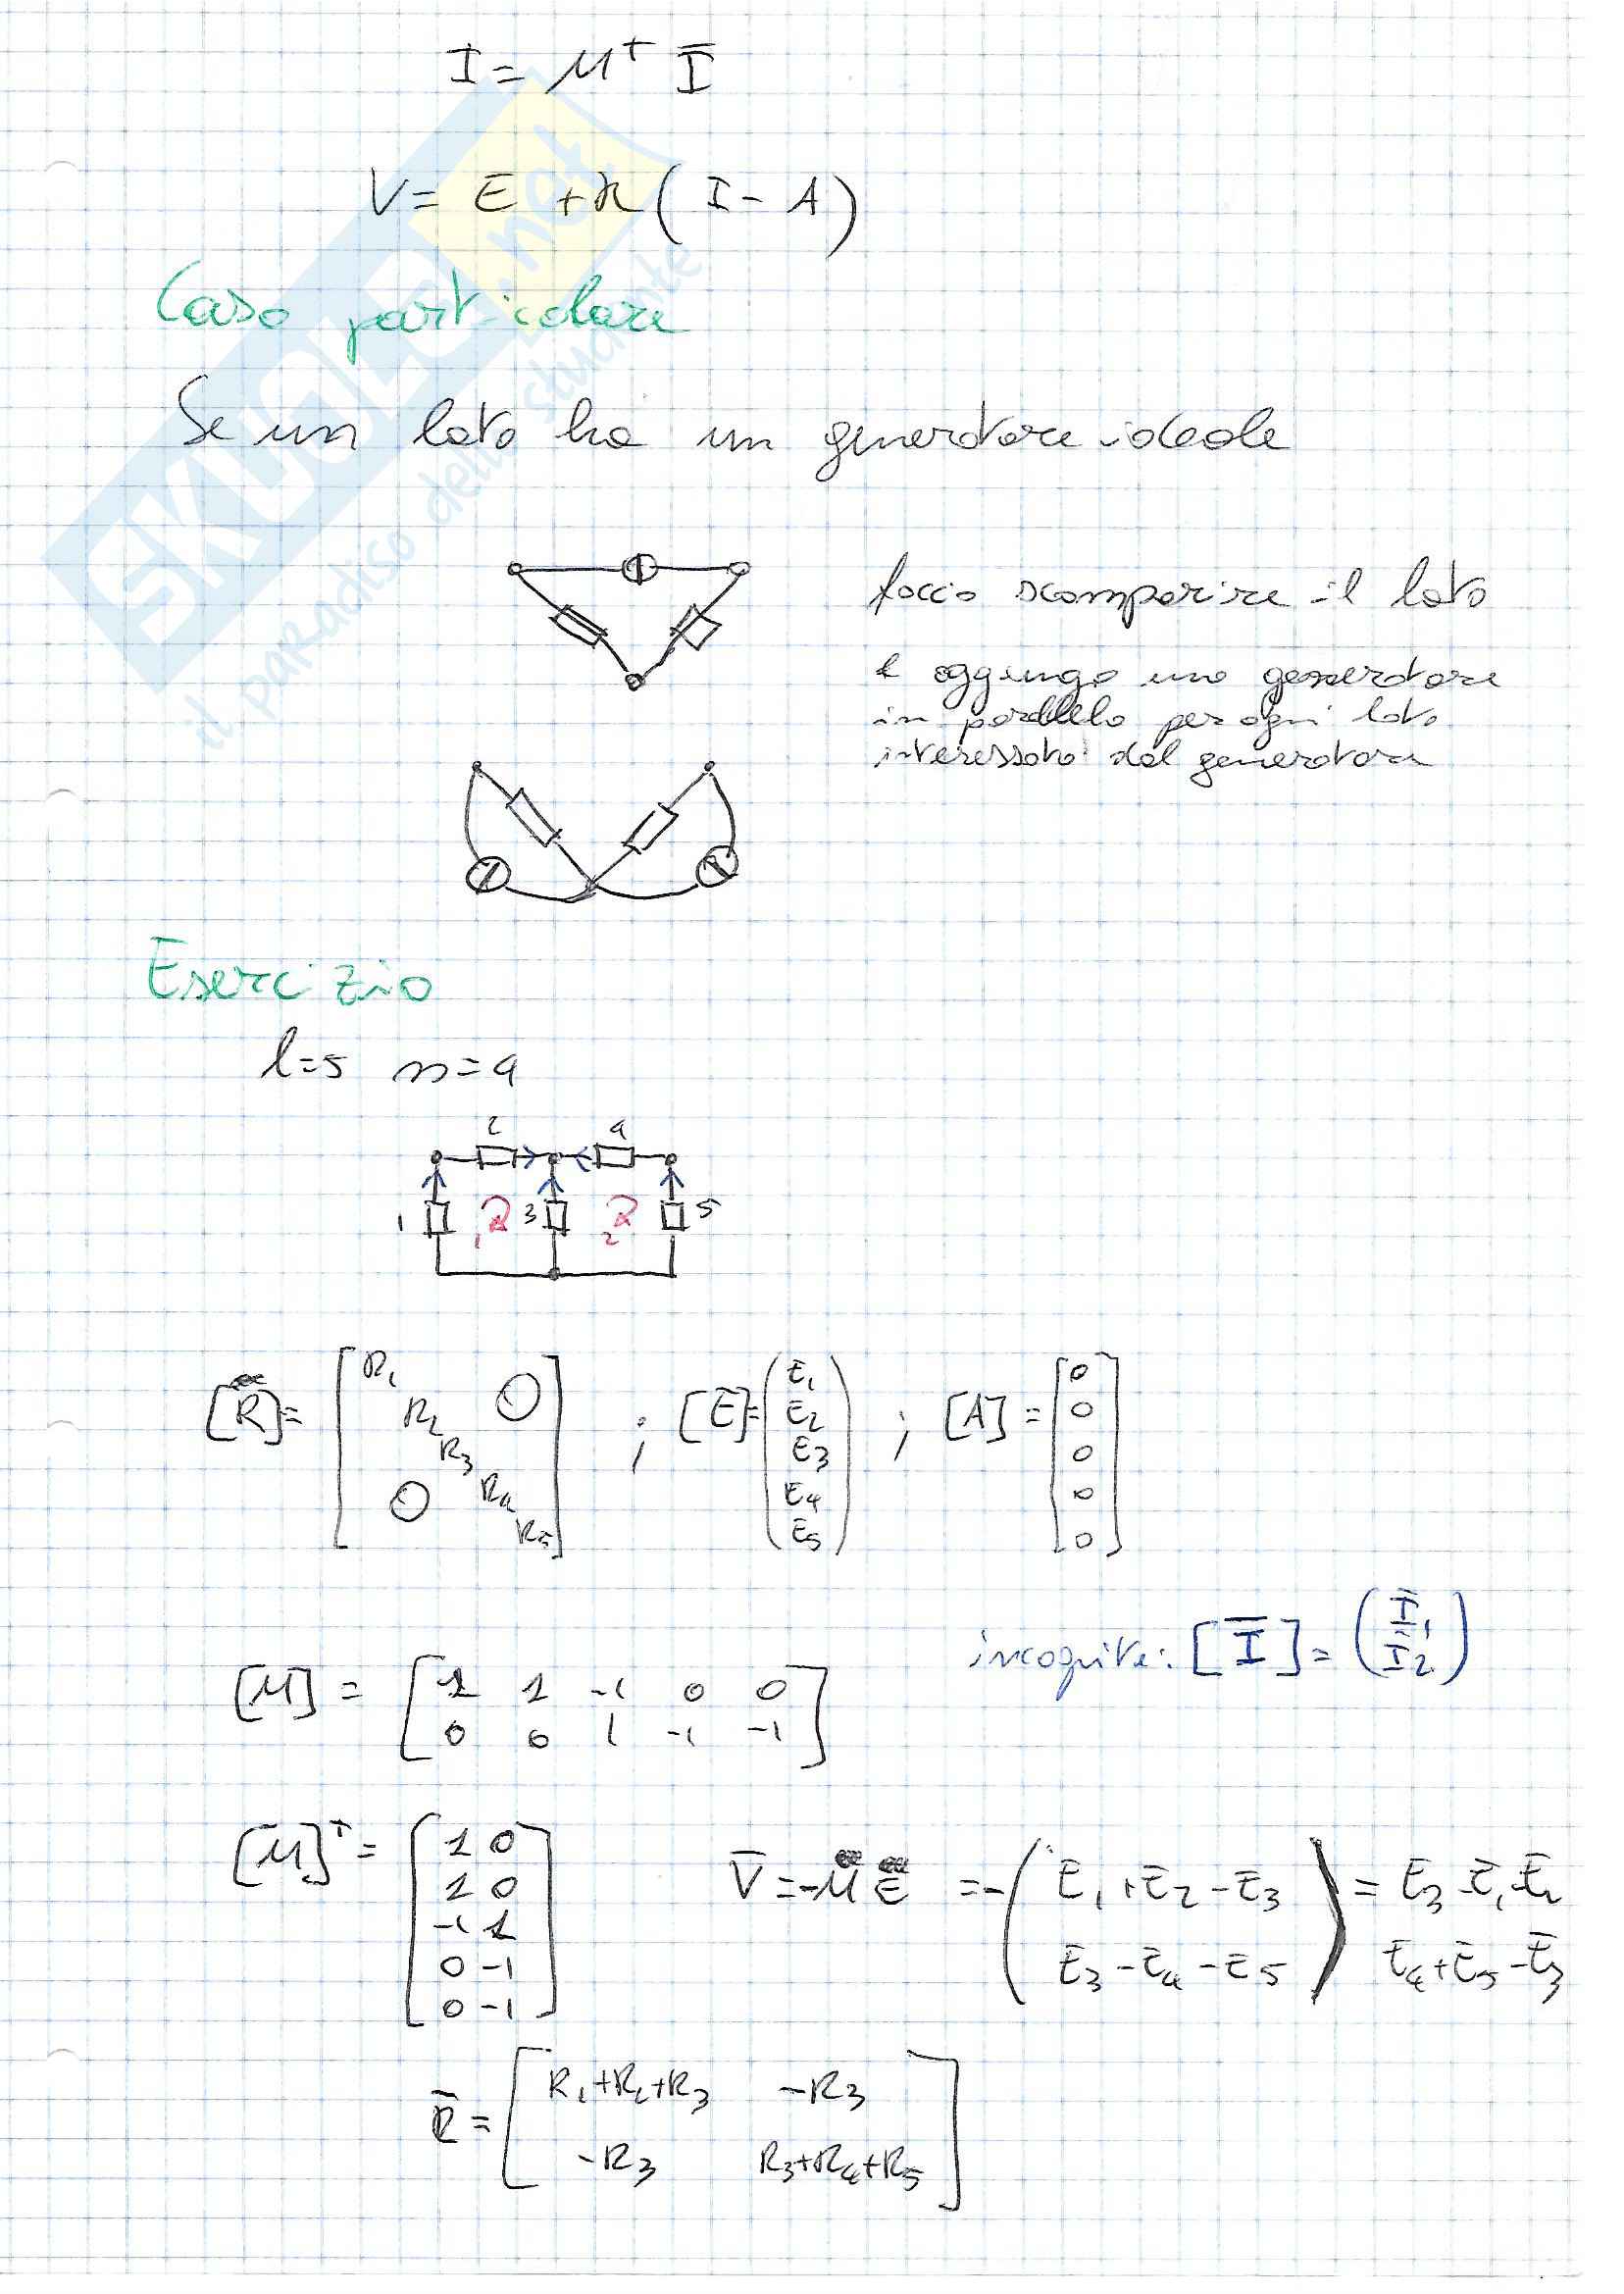 I = M^T Ī
V = E + R ( I - A )
Caso particolare
Se un lato ha un generatore ideale
faccio scomparire il lato
e aggiungo uno generatore
in parallelo per ogni lato
interessato dal generatore
Esercizio
l=5 n=4
2 4
1 1 3 2 5
[R] = [ R1 R2 R3 R4 R5 0 0 ] ; [E] = ( E1 E2 E3 E4 E5 ) ; [A] = [ 0 0 0 0 0 ]
incognite: [Ī] = ( Ī1 Ī2 )
[M] = [ 1 1 -1 0 0
0 0 1 -1 -1 ]
[M]^T = [ 1 0
1 0
-1 1
0 -1
0 -1 ]
V̄ = -M E = - ( E1 + E2 - E3 ) = E3 - E1 - E2
E3 - E4 - E5 E4 + E5 - E3
R̄ = [ R1+R2+R3 -R3
-R3 R3+R4+R5 ]
SKUOLA.net
il paradiso dello studente